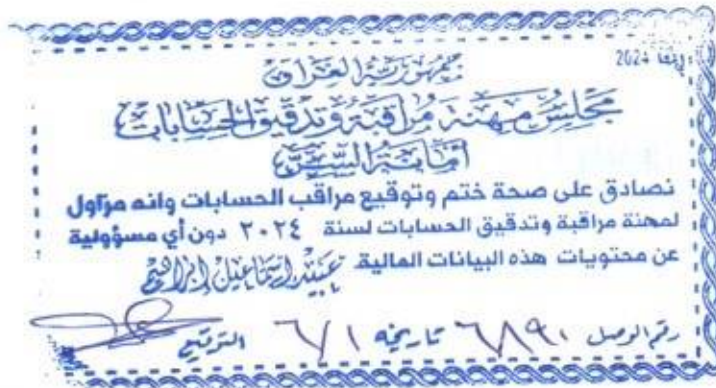 2024
جمهورية العراق
مجلس مهنة مراقبة وتدقيق الحسابات
أمانة السر
نصادق على صحة ختم وتوقيع مراقب الحسابات وانه مزاول
لمهنة مراقبة وتدقيق الحسابات لسنة ٢٠٢٤ دون أي مسؤولية
عن محتويات هذه البيانات المالية عبيد إسماعيل إبراهيم
رقم الوصل ٦٨٩٠ تاريخه ٦/١ التوقيع